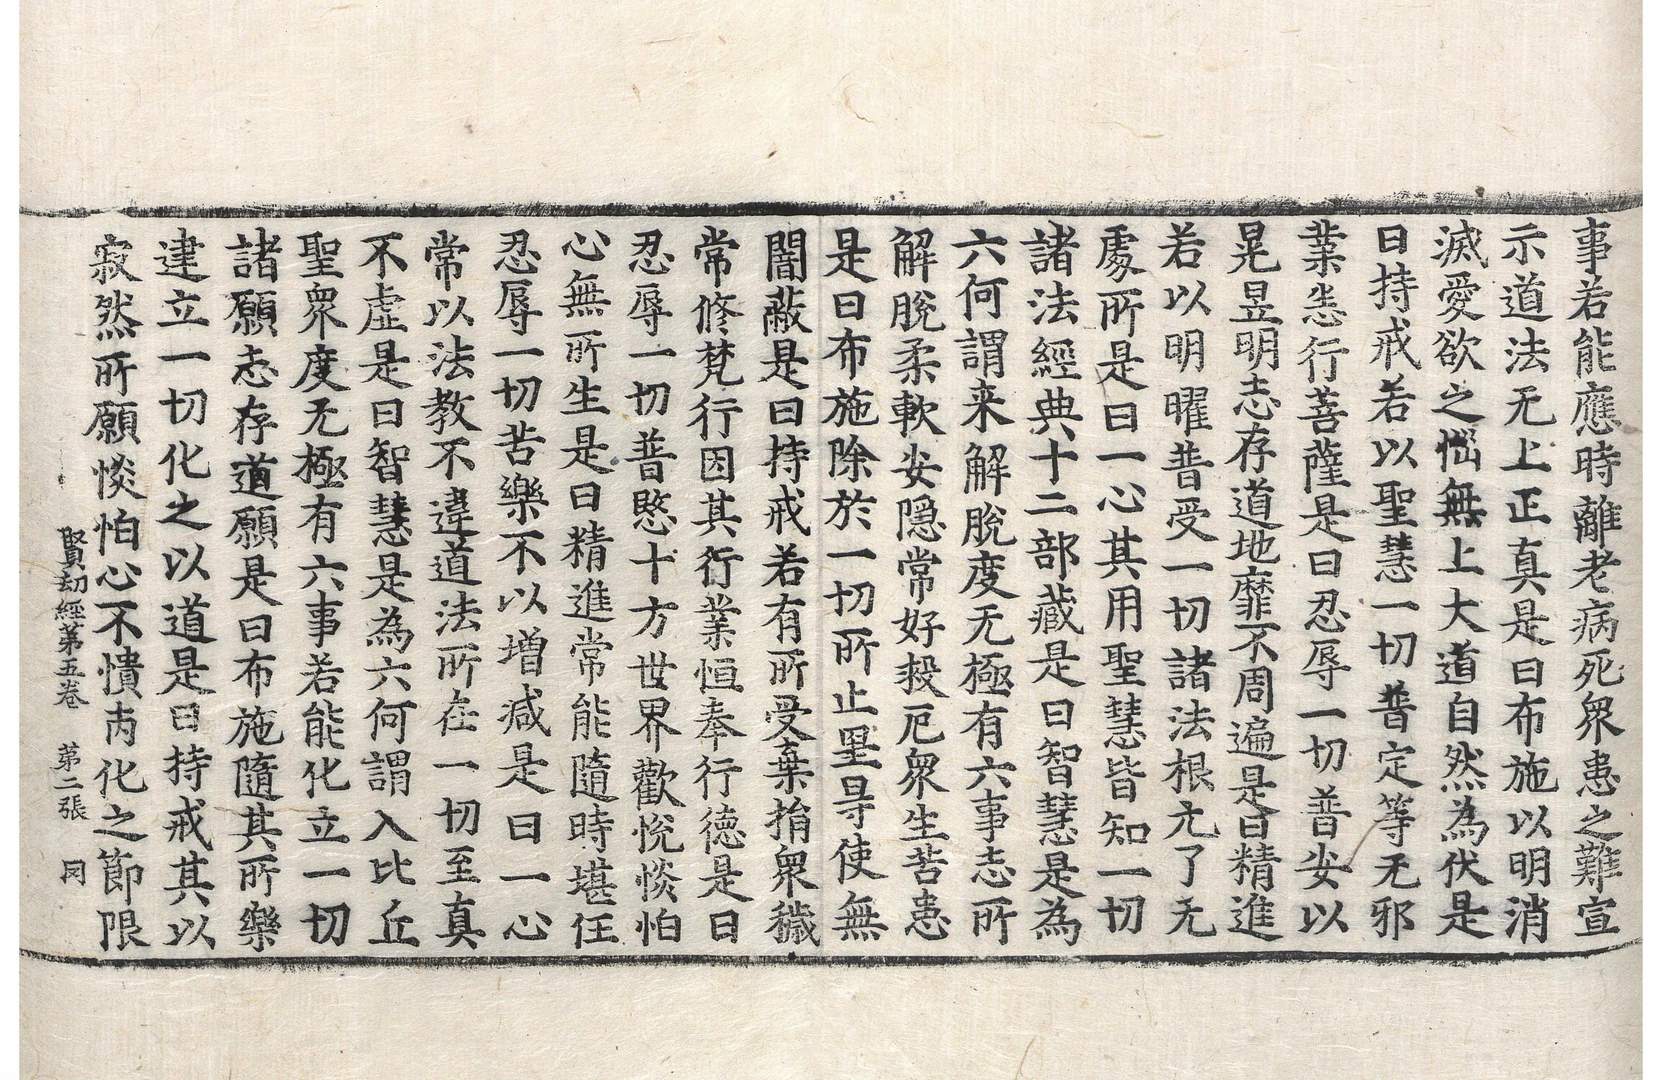 事若能應時離老病死衆患之難宣
示道法无上正真是曰布施以明消
滅愛欲之惱無上大道自然為伏是
曰持戒若以聖慧一切普定等无邪
業恙行菩薩是曰忍辱一切普安以
晃昱明志存道地靡不周遍是曰精進
若以明曜普受一切諸法根元了无
處所是曰一心其用聖慧皆知一切
諸法經典十二部藏是曰智慧是為
六何謂来解脫度无極有六事志所
解脫柔軟安隱常好殺厄衆生苦患
是曰布施除於一切所止罣㝵使無
闇蔽是曰持戒若有所受棄捐衆穢
常修梵行因其行業恒奉行德是曰
忍辱一切普愍十方世界歡悅惔怕
心無所生是曰精進常能隨時堪任
忍辱一切苦樂不以增减是曰一心
常以法教不違道法所在一切至真
不虛是曰智慧是為六何謂入比丘
聖衆度无極有六事若能化立一切
諸願志存道願是曰布施隨其所樂
建立一切化之以道是曰持戒其以
寂然所願惔怕心不憒丙化之節限
賢劫經第五卷 第二張 同